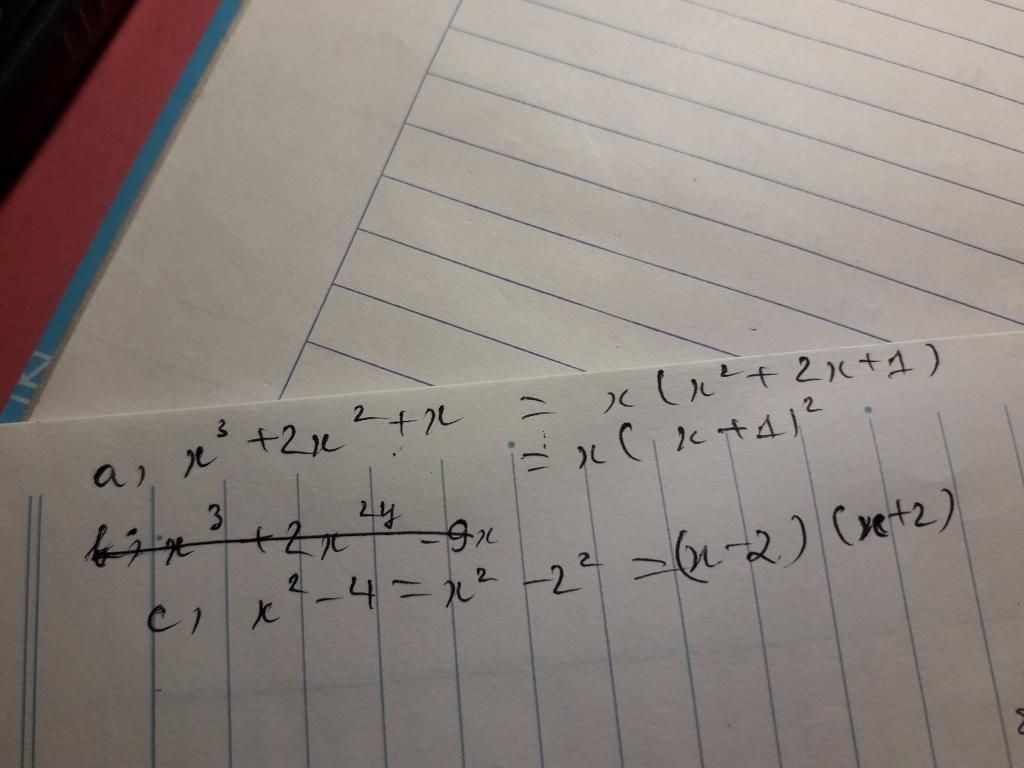 a, x³ + 2x² + x = x (x² + 2x + 1)
= x ( x + 1)²
b, x³ + 2x²y - 9x
c, x² - 4 = x² - 2² = (x - 2) (x + 2)